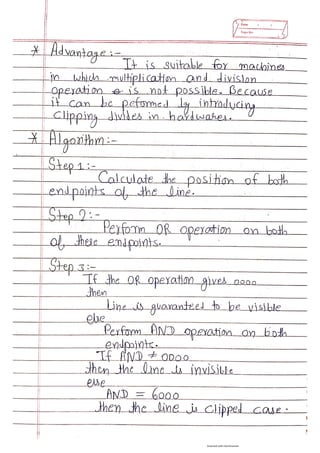 * Advantage :-
It is suitable for machines
in which multiplication and division
operation is not possible. Because
it can be peformed by introducing
Clipping divides in hardwares.
* Algorithm:-
Step 1 :-
Calculate the position of both
endpoints of the line.
Step 2 :-
Perform OR operation on both
of these endpoints.
Step 3 :-
If the OR operation gives 0000
then
line is guaranteed to be visible
else
Perform AND operation on both
endpoints.
If AND ≠ 0000
then the line is invisible
else
AND = 0000
then the line is clipped case.
Scanned with CamScanner